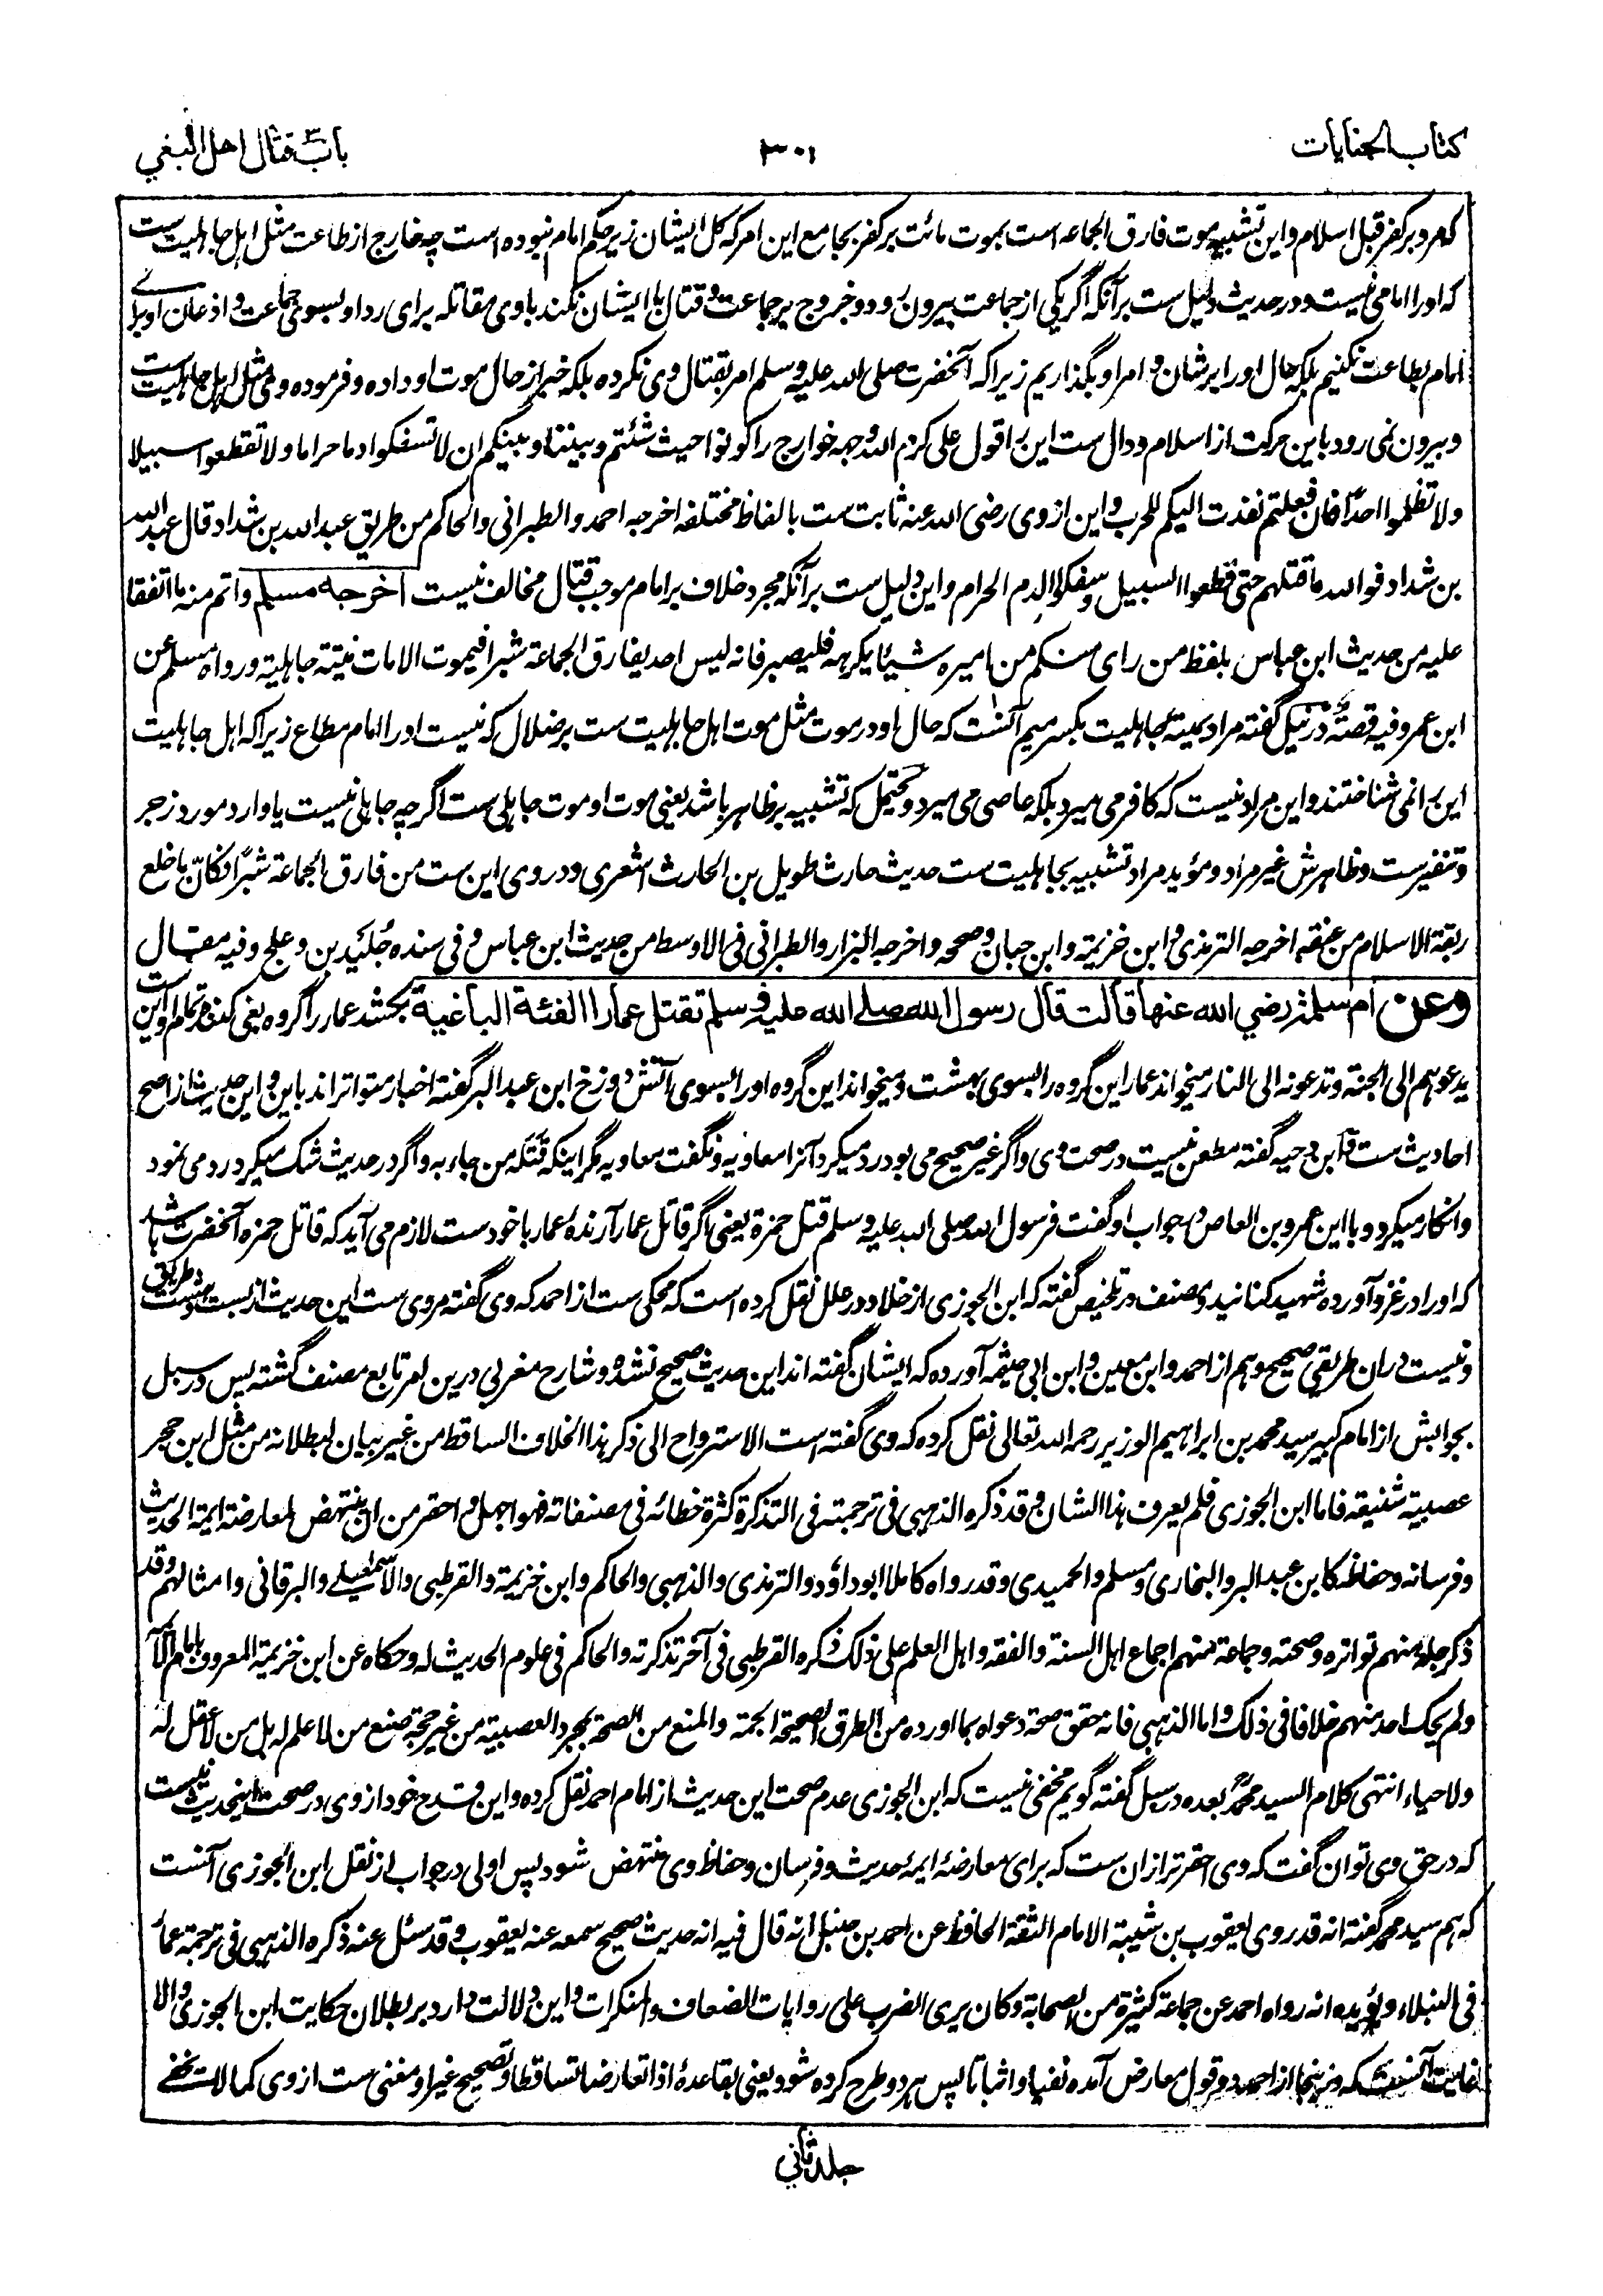 كتاب الجنايات
٣٠١
باب قتال اهل البغي
که مرد بر کفر قبل اسلام و این تشبیه موت فارق الجماعه است بموت مائت بر کفر بجامع این امر که کل ایشان زیر حکم امام نبوده است چه خارج از طاعت مثل اهل جاهلیت ست
که او را امامی نیست و در حدیث دلیل ست بر آنکه اگر یکی از جماعت بیرون رود و خروج بر جماعت و قتال با ایشان نکند با وی مقاتله برای رد او بسوی جماعت و اذعان او برای
امام بطاعت نکنیم بلکه حال او را بر شان و امر او بگذاریم زیرا که آنحضرت صلی الله علیه و سلم امر بقتال وی نکرده بلکه خبر از حال موت او داده و فرموده وی مثل اهل جاهلیت ست
و بیرون نمی رود باین حرکت از اسلام و دال ست این را قول علی کرم الله وجهه خوارج را کونوا حیث شئتم و بیننا و بینکم ان لا تسفکوا دما حراما ولا تقطعوا سبیلا
ولا تظلموا احدًا فان فعلتم نفذت الیکم للحرب و این از وی رضی الله عنه ثابت ست بالفاظ مختلفه اخرجه احمد والطبرانی والحاکم من طریق عبدالله بن شداد قال عبدالله
بن شداد فوالله ما قتلهم حتی قطعوا السبیل وسفکوا الدم الحرام و این دلیل ست بر آنکه مجرد خلاف بر امام موجب قتال مخالف نیست اخرجه مسلم و اتم منه ما اتفقا
علیه من حدیث ابن عباس بلفظ من رای منکم من امیره شیئا یکرهه فلیصبر فانه لیس احد یفارق الجماعة شبرا فیموت الا مات میتة جاهلیة ورواه مسلم عن
ابن عمر وفیه قصة در نیل گفته مراد بمیتة جاهلیت بکسر میم آنست که حال او در موت مثل موت اهل جاهلیت ست بر ضلال که نیست او را امام مطاع زیرا که اهل جاهلیت
این را نمی شناختند و این مراد نیست که کافر می میرد بلکه عاصی می میرد و محتمل که تشبیه بر ظاهر باشد یعنی موت او موت جاهلی ست اگر چه جاهلی نیست یا وارد مورد زجر
و تنفیرست و ظاهرش غیر مراد و مؤید مراد تشبیه بجاهلیت ست حدیث حارث طویل بن الحارث اشعری و در وی این ست من فارق الجماعة شبرًا فکانّما خلع
ربقة الاسلام من عنقه اخرجه الترمذی و ابن خزیمة وابن حبان و صححه واخرجه البزار والطبرانی فی الاوسط من حدیث ابن عباس وفی سنده خُلَید بن دعلج وفیه مقال
وعن ام سلمة رضي الله عنها قالت قال رسول الله صلے الله عليه وسلم تقتل عمارا الفئة الباغية بکشد عمار را گروه بغی کننده و تمام او این ست
یدعوهم الی الجنة وتدعونه الی النار میخواند عمار این گروه را بسوی بهشت و میخواند این گروه او را بسوی آتش دوزخ ابن عبدالبر گفته اخبار متواتر اند باین و این حدیث از اصح
احادیث ست و ابن دحیه گفته مطعن نیست در صحت وی و اگر غیر صحیح می بود رد میکرد آنرا معاویه و نگفت معاویه مگر اینکه قتله من جاء به و اگر در حدیث شک میکرد رد می نمود
و انکار میکرد و با ابن عمرو بن العاص در جواب او گفت فرسول الله صلی الله علیه و سلم قتل حمزة یعنی اگر قاتل عمار آرنده عمار با خودست لازم می آید که قاتل حمزه آنحضرت باشد
که او را در غزو آورده شهید کنانید و مصنف در تلخیص گفته که ابن الجوزی از خلال در علل نقل کرده است که محکی ست از احمد که وی گفته مروی ست این حدیث از بست و هشت طریق
و نیست دران طریقی صحیح و هم از احمد و ابن معین و ابن ابی خیثمه آورده که ایشان گفته اند این حدیث صحیح نشده و شارح مغربی درین امر تابع مصنف گشته پس در سبل
بجوابش از امام کبیر سید محمد بن ابراهیم الوزیر رحمه الله تعالی نقل کرده که وی گفته است الاسترواح الی ذکر هذا الخلاف الساقط من غیر بیان لبطلانه من مثل ابن حجر
عصبیة شنیعة فاما ابن الجوزی فلم یعرف هذا الشان وقد ذکره الذهبی فی ترجمته فی التذکرة کثرة خطائه فی مصنفاته فهو اجهل واحقر من ان ینتهض لمعارضة ایمة الحدیث
وفرسانه وحفاظه کابن عبدالبر والبخاری ومسلم والحمیدی وقد رواه کاملا ابو داؤد والترمذی والذهبی والحاکم وابن خزیمة والقرطبی والاسمعیلے والبرقانی وامثالهم وقد
ذکر جلة منهم تواتره وصحته وجماعة منهم اجماع اهل السنة والفقه واهل العلم علی ذلک ذکره القرطبی فی آخر تذکرته والحاکم فی علوم الحدیث له وحکاه عن ابن خزیمة المعروف بامام الائمة
ولم یحک احد منهم خلافا فی ذلک واما الذهبی فانه حقق صحة دعواه بما اورده من الطرق الصحیحة الجمة والمنع من الصحة بمجرد العصبیة من غیر حجة صنع من لا علم له بل من لا عقل له
ولا حیاء انتهی کلام السید محمد بعده در سبل گفته گویم مخفی نیست که ابن الجوزی عدم صحت این حدیث از امام احمد نقل کرده و این قدح خود از وی در صحت اینحدیث نیست
که در حق وی توان گفت که وی احقر تر ازان ست که برای معارضهٔ ایمهٔ حدیث و فرسان و حفاظ وی منتهض شود پس اولی در جواب از نقل ابن الجوزی آنست
که هم سید محمد گفته انه قد روی یعقوب بن شیبة الامام الثقة الحافظ عن احمد بن حنبل انه قال فیه انه حدیث صحیح سمعه عنه یعقوب وقد سئل عنه ذکره الذهبی فی ترجمة عمار
فی النبلاء ویؤیده انه رواه احمد عن جماعة کثیرة من الصحابة وکان یری الضرب علی روایات الضعاف والمنکرات و این دلالت دارد بر بطلان حکایت ابن الجوزی والا
غایت آنست که درینجا از احمد دو قول معارض آمده نفیا و اثباتا پس هر دو طرح کرده شود یعنی بقاعدهٔ اذا تعارضا تساقطا و تصحیح غیر او مغنی ست از وی کما لا یخفے
جلد ثاني